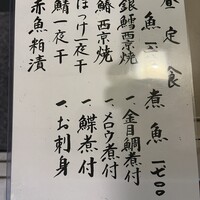 昼定食
魚
銀鱈西京焼
鰆西京焼
ほっけ一夜干
鯖一夜干
赤魚粕漬
煮魚 一七〇〇
一、金目鯛煮付
一、メロウ煮付
一、鰈煮付
一、お刺身